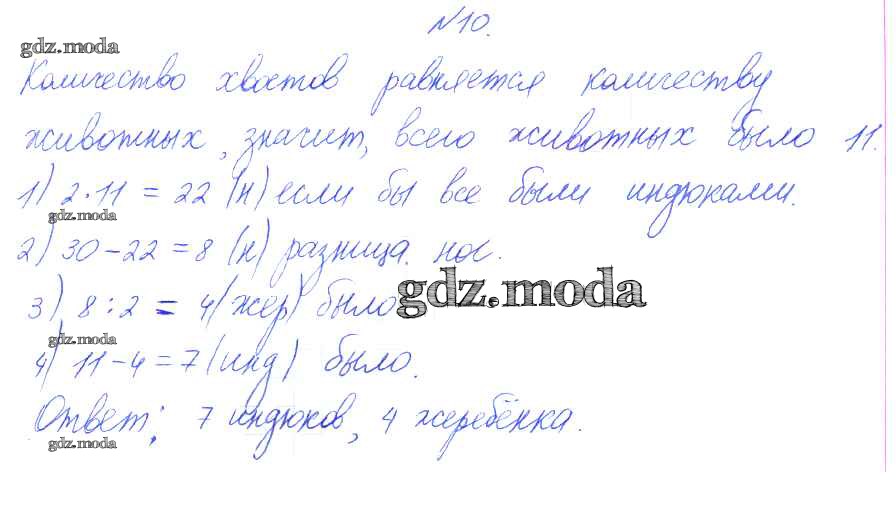 №10.
gdz.moda
Количество хвостов равняется количеству
животных, значит, всего животных было 11.
1) 2·11 = 22 (н) если бы все были индюками.
gdz.moda
2) 30-22 = 8 (н) разница ног.
3) 8:2 = 4 (жер) было
gdz.moda
gdz.moda
4) 11-4=7 (инд) было.
Ответ: 7 индюков, 4 жеребёнка.
gdz.moda